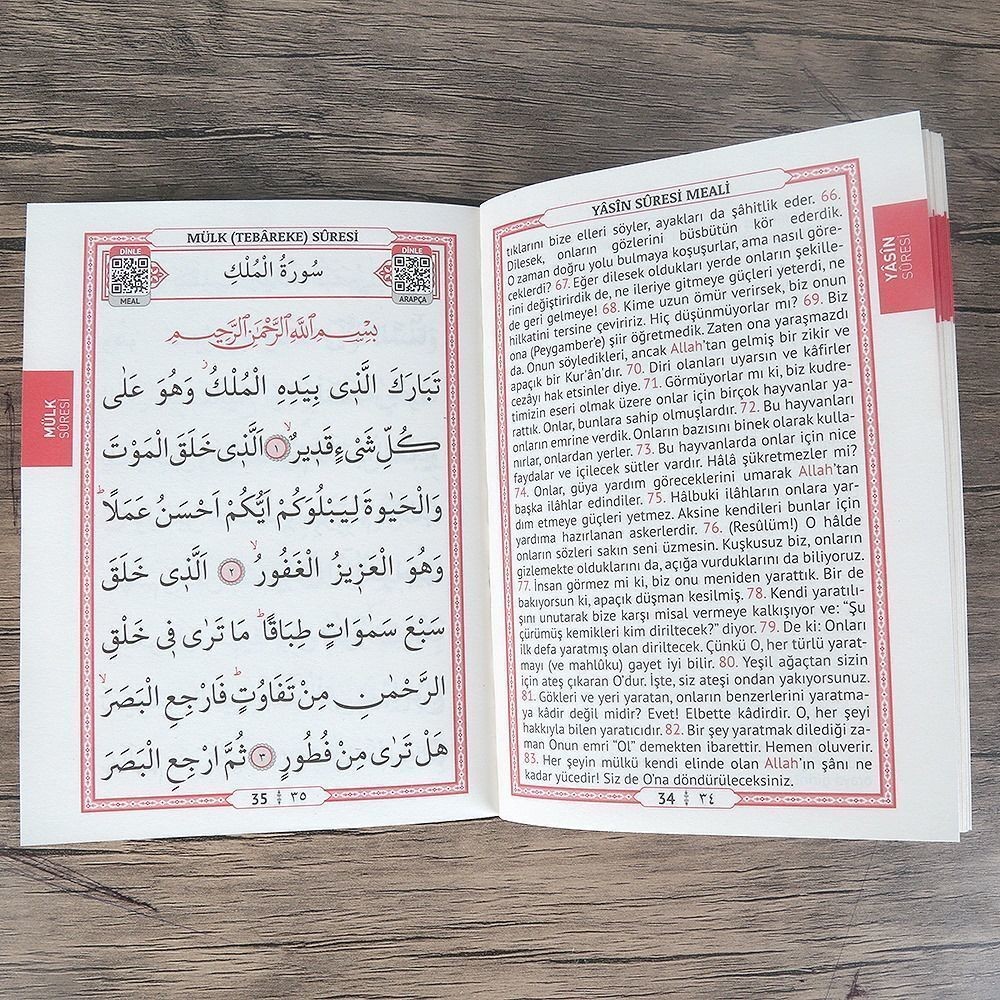 YÂSÎN SÛRESİ MEALİ
tıklarını bize elleri söyler, ayakları da şâhitlik eder. 66.
Dilesek, onların gözlerini büsbütün kör ederdik.
O zaman doğru yolu bulmaya koşuşurlar, ama nasıl göre-
ceklerdi? 67. Eğer dilesek oldukları yerde onların şekille-
rini değiştirirdik de, ne ileriye gitmeye güçleri yeterdi, ne
de geri gelmeye! 68. Kime uzun ömür verirsek, biz onun
hilkatini tersine çeviririz. Hiç düşünmüyorlar mı? 69. Biz
ona (Peygamber'e) şiir öğretmedik. Zaten ona yaraşmazdı
da. Onun söyledikleri, ancak Allah'tan gelmiş bir zikir ve
apaçık bir Kur'ân'dır. 70. Diri olanları uyarsın ve kâfirler
cezâyı hak etsinler diye. 71. Görmüyorlar mı ki, biz kudre-
timizin eseri olmak üzere onlar için birçok hayvanlar ya-
rattık. Onlar, bunlara sahip olmuşlardır. 72. Bu hayvanları
onların emrine verdik. Onların bazısını binek olarak kulla-
nırlar, onlardan yerler. 73. Bu hayvanlarda onlar için nice
faydalar ve içilecek sütler vardır. Hâlâ şükretmezler mi?
74. Onlar, güya yardım göreceklerini umarak Allah'tan
başka ilâhlar edindiler. 75. Hâlbuki ilâhların onlara yar-
dım etmeye güçleri yetmez. Aksine kendileri bunlar için
yardıma hazırlanan askerlerdir. 76. (Resûlüm!) O hâlde
onların sözleri sakın seni üzmesin. Kuşkusuz biz, onların
gizlemekte olduklarını da, açığa vurduklarını da biliyoruz.
77. İnsan görmez mi ki, biz onu meniden yarattık. Bir de
bakıyorsun ki, apaçık düşman kesilmiş. 78. Kendi yaratılı-
şını unutarak bize karşı misal vermeye kalkışıyor ve: “Şu
çürümüş kemikleri kim diriltecek?” diyor. 79. De ki: Onları
ilk defa yaratmış olan diriltecek. Çünkü O, her türlü yarat-
mayı (ve mahlûku) gayet iyi bilir. 80. Yeşil ağaçtan sizin
için ateş çıkaran O'dur. İşte, siz ateşi ondan yakıyorsunuz.
81. Gökleri ve yeri yaratan, onların benzerlerini yaratma-
ya kâdir değil midir? Evet! Elbette kâdirdir. O, her şeyi
hakkıyla bilen yaratıcıdır. 82. Bir şey yaratmak dilediği za-
man Onun emri “Ol” demekten ibarettir. Hemen oluverir.
83. Her şeyin mülkü kendi elinde olan Allah'ın şânı ne
kadar yücedir! Siz de O'na döndürüleceksiniz.
34 ٣٤
YÂSÎN
SÛRESİ
MÜLK (TEBÂREKE) SÛRESİ
DİNLE
MEAL
سُورَةُ الْمُلْكِ
DİNLE
ARAPÇA
بِسْمِ اللّٰهِ الرَّحْمٰنِ الرَّحِيمِ
تَبَارَكَ الَّذ۪ي بِيَدِهِ الْمُلْكُۘ وَهُوَ عَلٰى
كُلِّ شَيْءٍ قَد۪يرٌۙ ﴿١﴾ اَلَّذ۪ي خَلَقَ الْمَوْتَ
وَالْحَيٰوةَ لِيَبْلُوَكُمْ اَيُّكُمْ اَحْسَنُ عَمَلًاۜ
وَهُوَ الْعَز۪يزُ الْغَفُورُۙ ﴿٢﴾ اَلَّذ۪ي خَلَقَ
سَبْعَ سَمٰوَاتٍ طِبَاقًاۜ مَا تَرٰى ف۪ي خَلْقِ
الرَّحْمٰنِ مِنْ تَفَاوُتٍۜ فَارْجِعِ الْبَصَرَۙ
هَلْ تَرٰى مِنْ فُطُورٍ ﴿٣﴾ ثُمَّ ارْجِعِ الْبَصَرَ
35 ٣٥
MÜLK
SÛRESİ